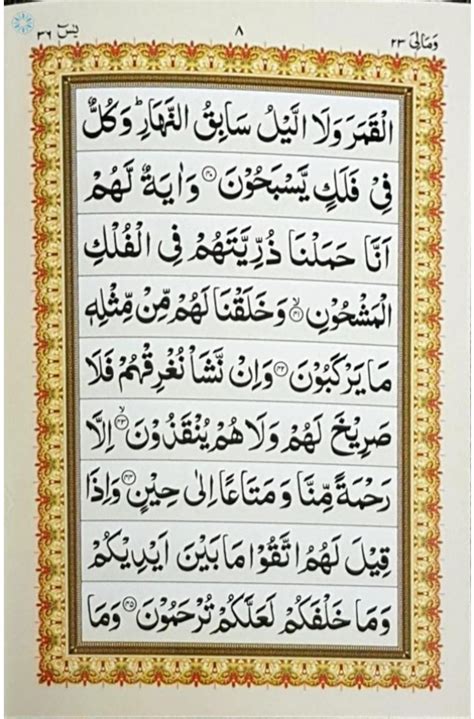 یٰسٓ ۳۶ ۸ وَمَالِیَ ۲۳
الْقَمَرَ وَلَا الَّیْلُ سَابِقُ النَّهَارِ ؕ وَكُلٌّ
فِیْ فَلَكٍ یَّسْبَحُوْنَ ۝۴۰ وَاٰیَةٌ لَّهُمْ
اَنَّا حَمَلْنَا ذُرِّیَّتَهُمْ فِی الْفُلْكِ
الْمَشْحُوْنِ ۝۴۱ۙ وَخَلَقْنَا لَهُمْ مِّنْ مِّثْلِهٖ
مَا یَرْكَبُوْنَ ۝۴۲ وَاِنْ نَّشَاْ نُغْرِقْهُمْ فَلَا
صَرِیْخَ لَهُمْ وَلَا هُمْ یُنْقَذُوْنَ ۝۴۳ۙ اِلَّا
رَحْمَةً مِّنَّا وَمَتَاعًا اِلٰی حِیْنٍ ۝۴۴ وَاِذَا
قِیْلَ لَهُمُ اتَّقُوْا مَا بَیْنَ اَیْدِیْكُمْ
وَمَا خَلْفَكُمْ لَعَلَّكُمْ تُرْحَمُوْنَ ۝۴۵ وَمَا